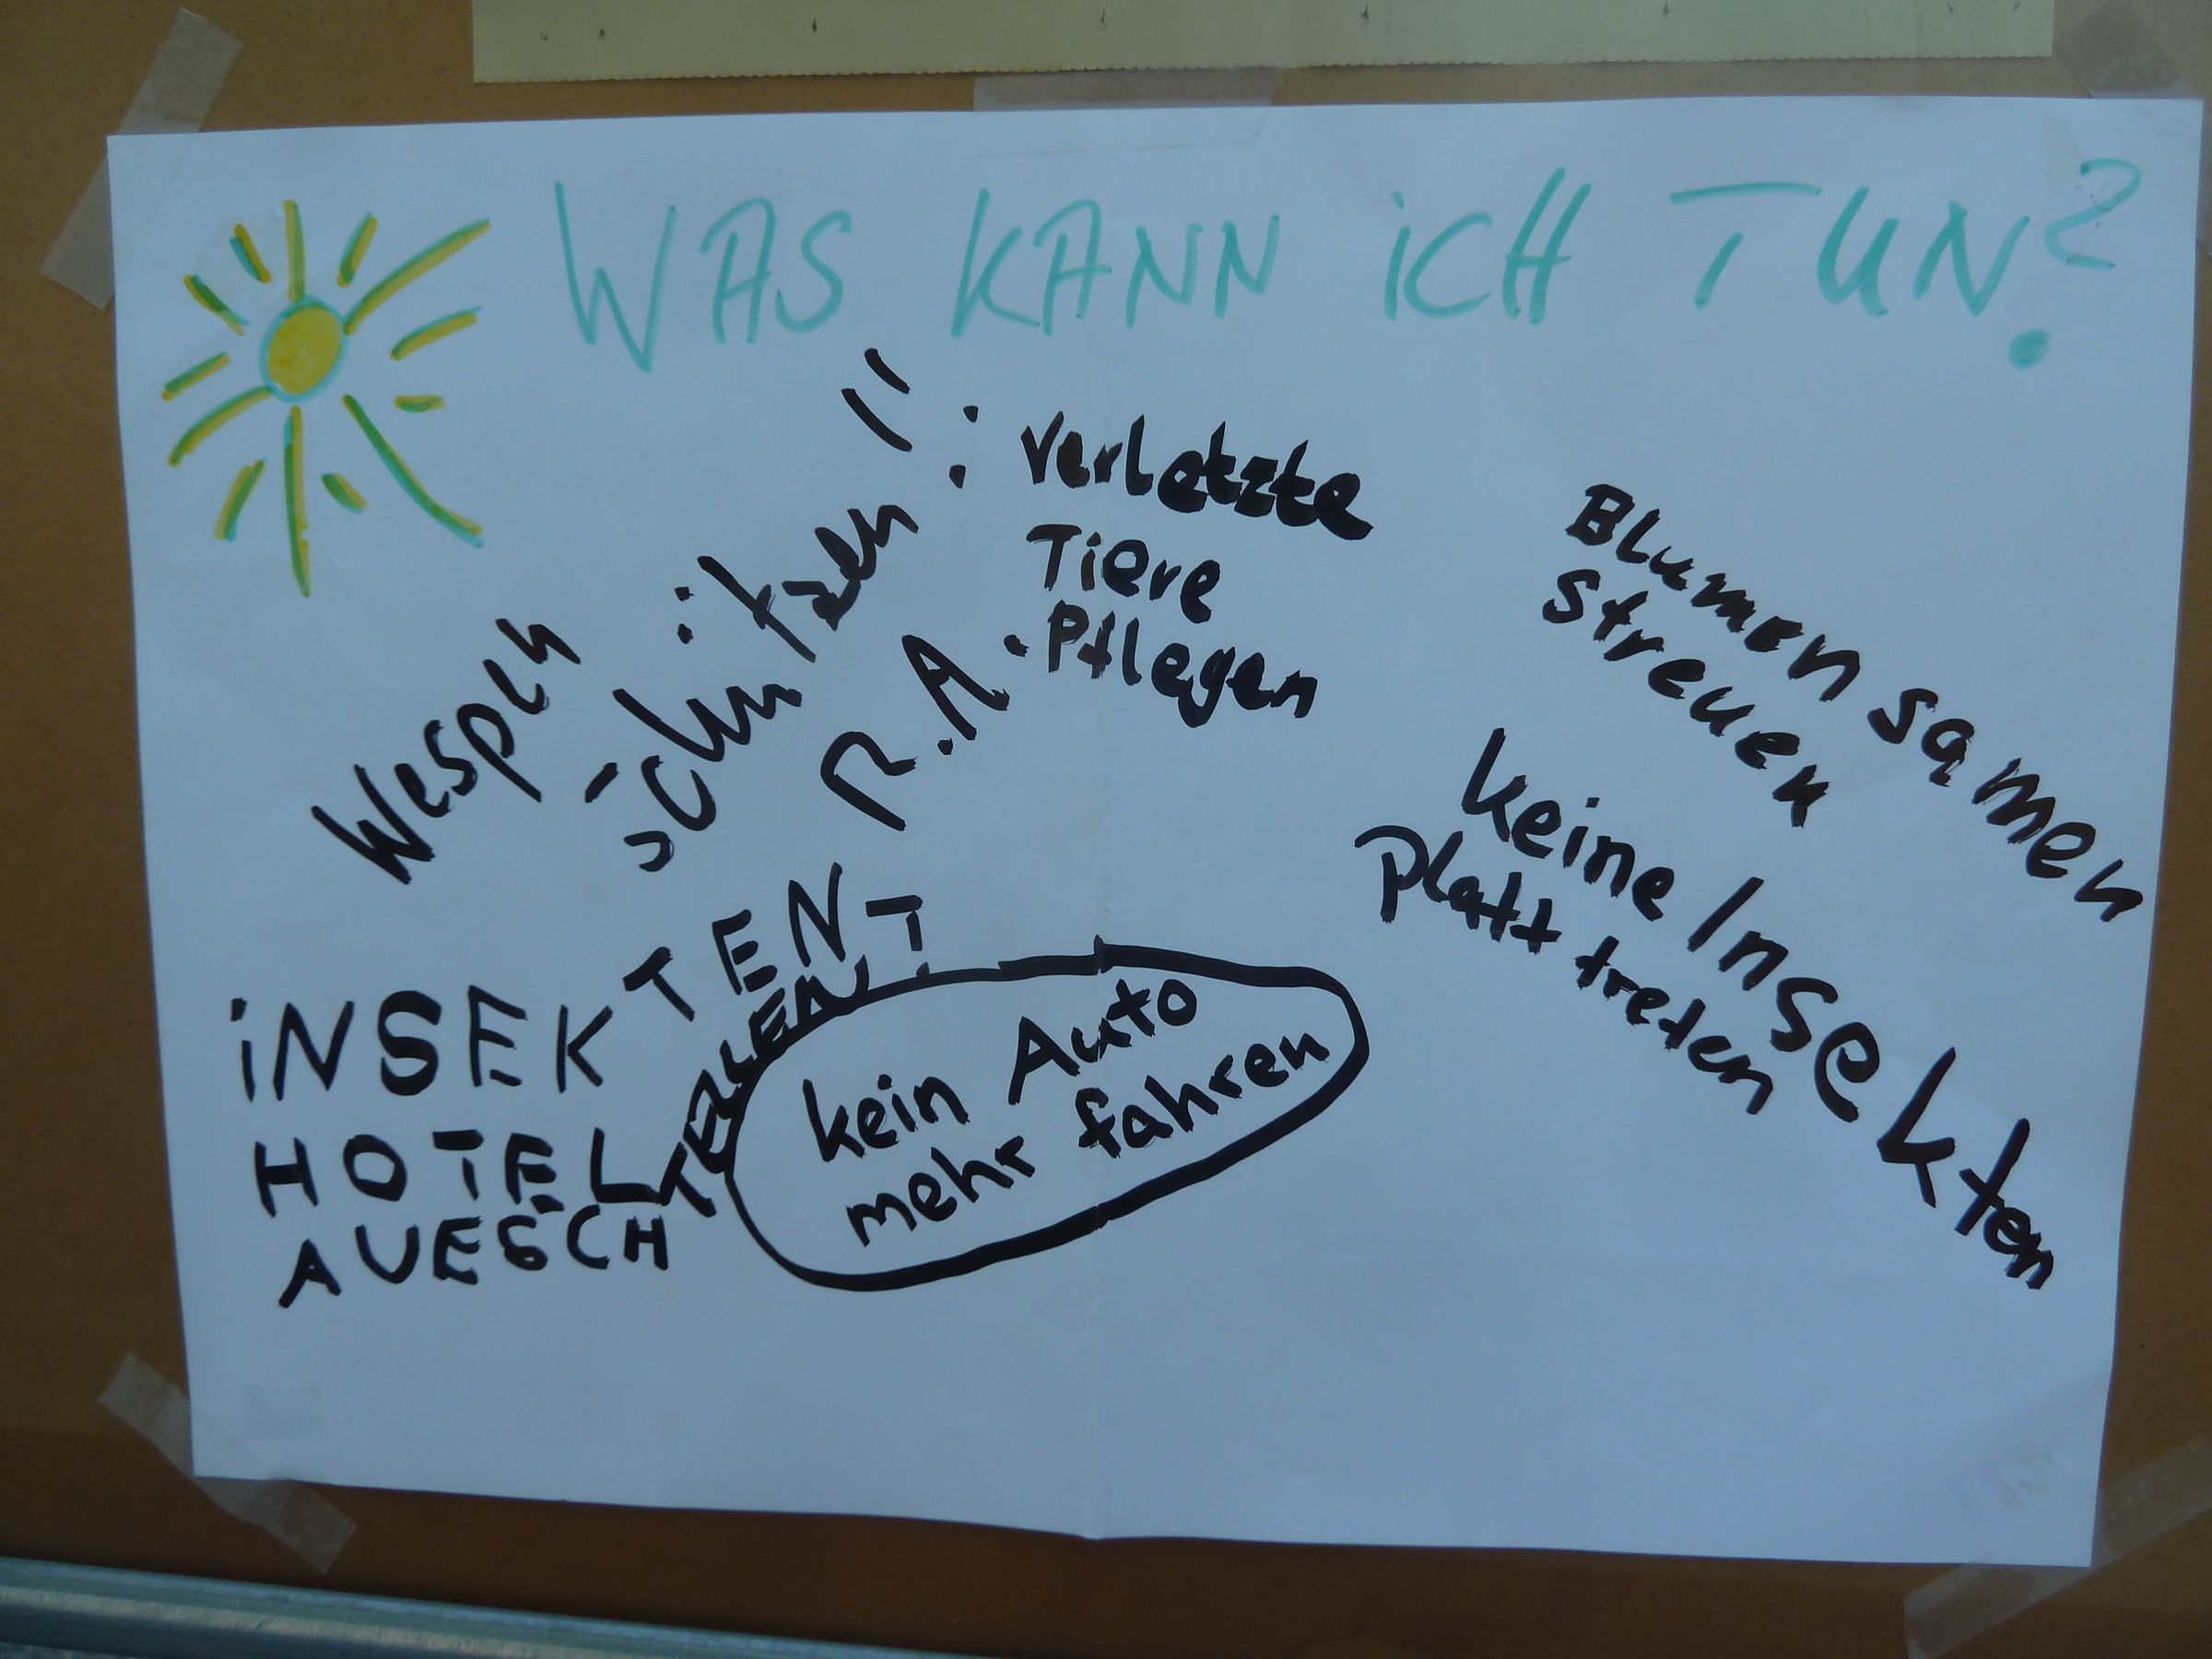 WAS KANN iCH TUN?
Wespen
schützen
R.A.
: verletzte
Tiere
Pflegen
Blumen samen
streuen
keine Insekten
platt treten
iNSEKTEN
HOTEL
kein Auto
mehr fahren